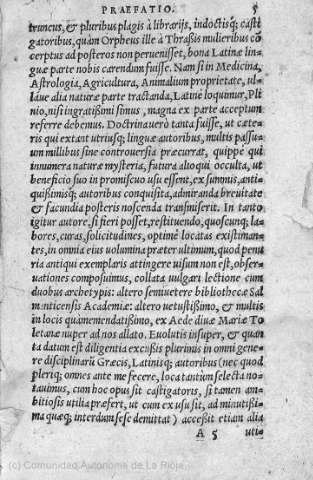 PRAEFATIO. 5
truncus, & pluribus plagis à librarijs, indoctisq; casti
gatoribus, quàm Orpheus ille à Thrassis mulieribus cõ
cerptus ad posteros non peruenisset, bona Latinæ lin-
guæ parte nobis carendum fuisse. Nam si in Medicina,
Astrologia, Agricultura, Animalium proprietate, ul-
láue alia naturæ parte tractanda, Latinè loquimur, Pli
nio, nisi ingratissimi simus, magna ex parte acceptum
referre debemus. Doctrina uerò tanta fuisse, ut cæte-
ris qui extant utriusq; linguæ autoribus, multis passu-
um millibus sine controuersia præcurrat, quippe qui
innumera naturæ mysteria, futura alioqui occulta, ut
beneficio suo in promiscuo usu essent, ex summis, anti-
quissimisq; autoribus conquisita, admiranda breuitate
& facundia posteris noscenda transmiserit. In tanto
igitur autore, si fieri posset, restituendo, quoscunq; la-
bores, curas, solicitudines, optimè locatas existiman-
tes, in omnia eius uolumina præter ultimum, quod penu
ria antiqui exemplaris attingere uisum non est, obser-
uationes composuimus, collata uulgari lectione cum
duobus archetypis: altero semiuetere bibliothecæ Sal
manticensis Academiæ: altero uetustissimo, & multis
in locis quàm emendatissimo, ex Aede diuæ Mariæ To
letanæ nuper ad nos allato. Euolutis insuper, & quan-
ta datum est diligentia excussis plurimis in omni gene-
re disciplinarũ Græcis, Latinisq; autoribus (nec quod
pleriq; omnes ante me fecere, loca tantùm selecta no-
tauimus, cum hoc opus sit castigatoris, si tamen am-
bitiosis utilia præfert, ut cum ex usu sit, ad minutissi-
ma quæq; interdum sese demittat) accessit etiam alia
A 5 uti-
(c) Comunidad Autónoma de La Rioja